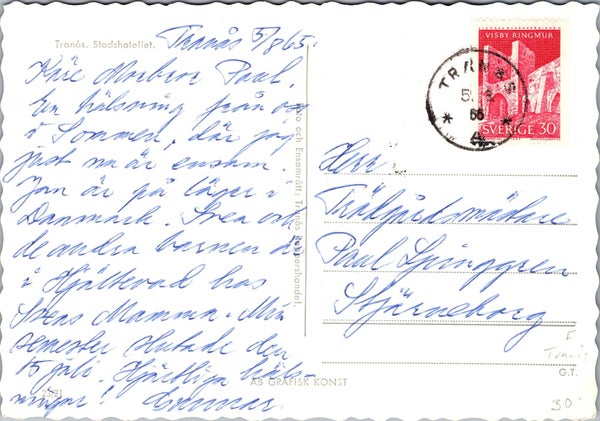 Tranås. Stadshotellet.
Tranås 5/8 65.
Käre Morbror Paul.
En hälsning från oss
i Sommen, där jag
just nu är ensam.
Jan är på läger i
Danmark. Svea och
de andra barnen är
i Hjältevad hos
Sveas Mamma. Min
semester slutade den
15 juli. Hjärtliga häls-
ningar! Gunnar.
och Ensamrätt: Tranås Pappershandel.
AB GRAFISK KONST
VISBY RINGMUR
SVERIGE 30
TRANÅS
65
Herr
Trädgårdsmästare
Paul Ljunggren
Stjärneborg
F
Tranås
G.T.
30